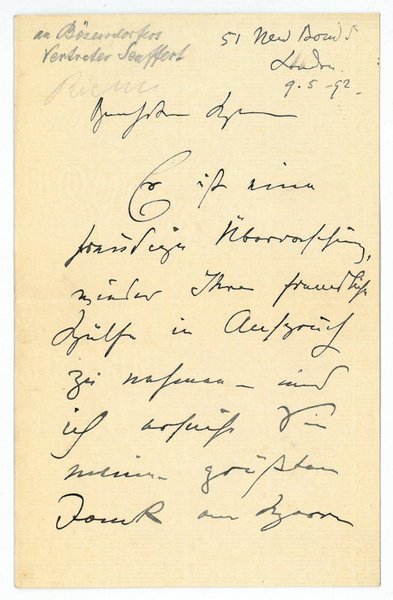 an Bösendorfers
Vertreter Seuffert
51 New Bond St
London
9.5-92.
Es ist eine
freudige Überraschung,
wieder Ihre freundliche
Hülfe in Anspruch
zu nehmen – und
ich ersuche Sie
meinen größten
Dank an Herrn